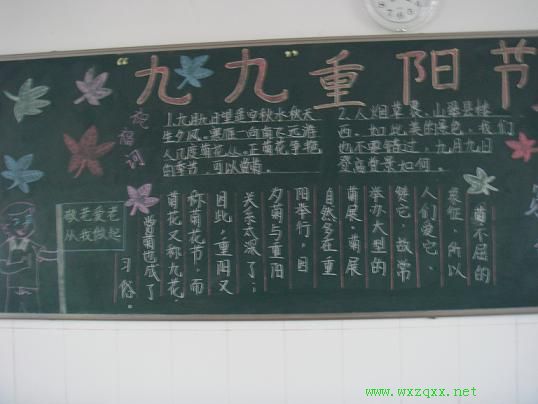 “九九”重阳节
祝福词
1.九月九日望遥空,秋水秋天
生夕风。寒雁一向南飞远,游
人几度菊花丛。正菊花季艳
的季节,可以赏菊。
2.人烟
山
县楼
西。如此美的景色,我们
也不要错过,九月九日
登高赏景如何。
菊不屈的
象征,所以
人们爱它、
赞它,故常
举办大型的
菊展。菊展
自然多在重
阳举行,因
夕菊与重阳
关系太深了;
因此,重阳又
称菊花节,而
菊花又称九花。
赏菊也成了
习俗。
敬老爱老
从我做起
www.wxzqxx.net